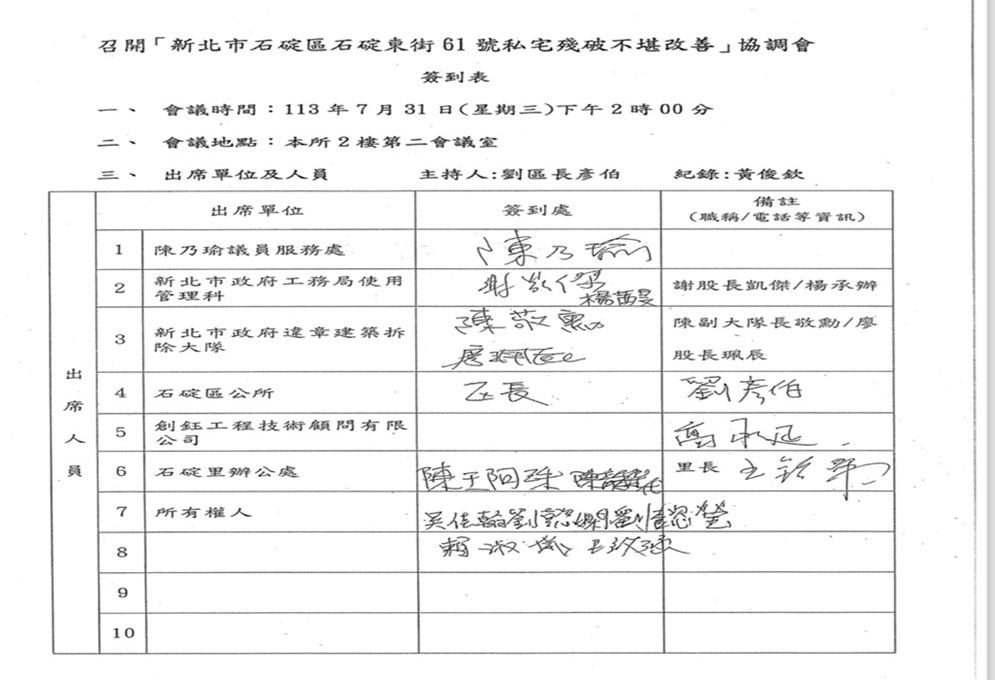 召開「新北市石碇區石碇東街61號私宅殘破不堪改善」協調會
簽到表
一、 會議時間：113年7月31日(星期三)下午2時00分
二、 會議地點：本所2樓第二會議室
三、 出席單位及人員 主持人:劉區長彥伯 紀錄:黃俊欽
出席人員
出席單位 簽到處 備註
(職稱/電話等資訊)
1 陳乃瑜議員服務處 陳乃瑜
2 新北市政府工務局使用
管理科 謝凱傑 謝股長凱傑/楊承辦
3 新北市政府違章建築拆
除大隊 陳敬勳
廖珮辰 陳副大隊長敬勳/廖
股長珮辰
4 石碇區公所 區長 劉彥伯
5 創鈺工程技術顧問有限
公司
6 石碇里辦公處 陳王阿珠 里長
7 所有權人 吳佳翰
8
9
10